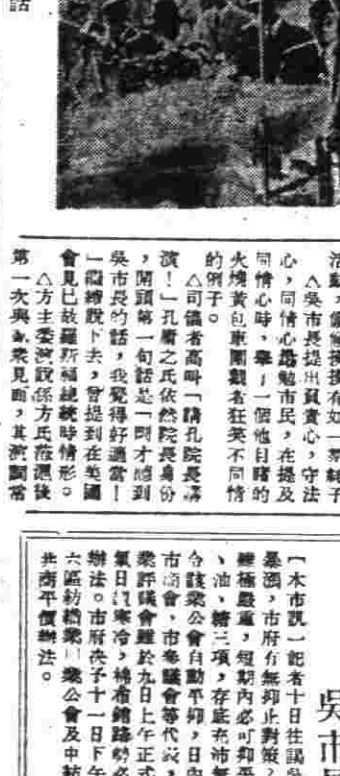 話
△吳市長提出負責心，守法
心，同情心勗勉市民，在提及
同情心時，舉了一個他目睹的
火燒黃包車圍觀者狂笑不同情
的例子。
△司儀者高呼「請孔院長講
演！」孔庸之氏依然院長身份
，開頭第一句話是「剛才聽到
吳市長的話，我覺得好適當！
」繼續說下去，曾提到在美國
會見已故羅斯福總統時情形。
△方主委演說係方氏蒞滬後
第一次與民眾見面，其演詞當
吳市
〔本市訊〕記者十日往謁
暴漲，市府有無抑止對策
極嚴重，短期內必可抑平
、油、糖三項，存底充沛
令該業公會自動平抑，日內
市商會，市參議會等代表，
業評議會雖於九日上午正式
氣日寒冷，棉布銷路勢必
辦法。市府決于十一日下午
六區紡織業同業公會及中紡
共商平價辦法。